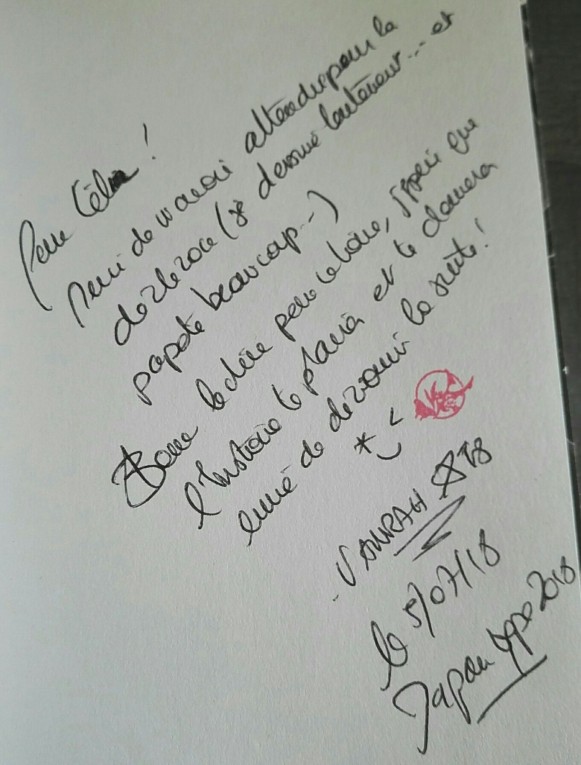 Pour Célia !
Merci de m'avoir attendu pour la
dédicace (je dessine lentement... et
papote beaucoup...)
Bonne lecture pour ce tome, j'espère que
l'histoire te plaira et te donnera
envie de découvrir la suite !
VANRAH 18
le 5/07/18
Japan Expo 2018